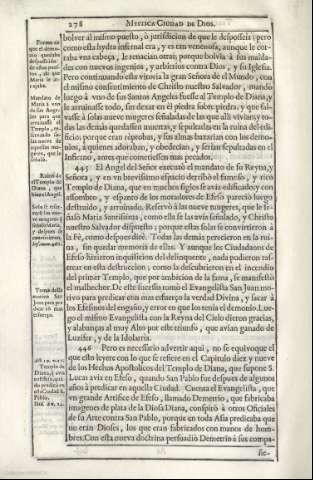 278 MYSTICA CIUDAD DE DIOS.
bolver al mismo puesto, ò jurisdicion de que le desposseìa: pero
como esta hydra infernal era, y es tan venenosa, aunque le cor-
tava vna cabeça, le renacian otras; porque bolvia à sus malda-
des con nuevos ingenios, y arbitrios contra Dios, y su Iglesia.
Pero continuando esta vitoria la gran Señora de el Mundo, con
el mismo consentimiento de Christo nuestro Salvador, mandò
luego à vno de sus Santos Angeles fuesse al Templo de Diana, y
le arruinasse todo, sin dexar en él piedra sobre piedra, y que sal-
vasse à solas nueve mugeres señaladas de las que allì vivian; y to-
das las demàs quedassen muertas, y sepultadas en la ruina del edi-
ficio; porque eran réprobas, y sus almas baxarian con los demo-
nios, à quienes adoraban, y obedecian, y serian sepultadas en el
Infierno, antes que cometiessen mas pecados.
445 El Angel del Señor executò el mandato de su Reyna, y
Señora, y en vn brevissimo espacio derribò el famoso, y rico
Templo de Diana, que en muchos siglos se avia edificado; y con
assombro, y espanto de los moradores de Efeso pareciò luego
destruido, y arruinado. Reservò à las nueve mugeres, que le se-
ñalò Maria Santissima, como ella se las avia señalado, y Christo
nuestro Salvador dispuesto; porque estas solas se convirtieron à
la Fè, como despues diré. Todas las demàs perecieron en la rui-
na, sin quedar memoria de ellas. Y aunque los Ciudadanos de
Efeso hizieron inquisicion del delinquente, nada pudieron ras-
trear en esta destruccion, como la descubrieron en el incendio
del primer Templo, que por ambicion de la fama, se manifestò
el malhechor. De este sucesso tomò el Evangelista San Juan mo-
tivo para predicar con mas esfuerço la verdad Divina, y sacar à
los Efesinos del engaño, y error en que los tenia el demonio. Lue-
go el mismo Evangelista con la Reyna del Cielo dieron gracias,
y alabanças al muy Alto por este triunfo, que avian ganado de
Luzifer, y de la Idolatria.
446 Pero es necessario advertir aqui, no se equivoque el
que esto leyere con lo que se refiere en el Capitulo diez y nueve
de los Hechos Apostolicos del Templo de Diana, que supone S.
Lucas avia en Efeso, quando San Pablo fue despues de algunos
años à predicar en aquella Ciudad. Cuenta el Evangelista, que
vn grande Artifice de Efeso, llamado Demetrio, que fabricaba
imagenes de plata de la Diosa Diana, conspirò à otros Oficiales
de su Arte contra San Pablo, porque en toda Asia predicaba que
no eran Dioses, los que eran fabricados con manos de hom-
bres. Con esta nueva doctrina persuadiò Demetrio à sus compa-